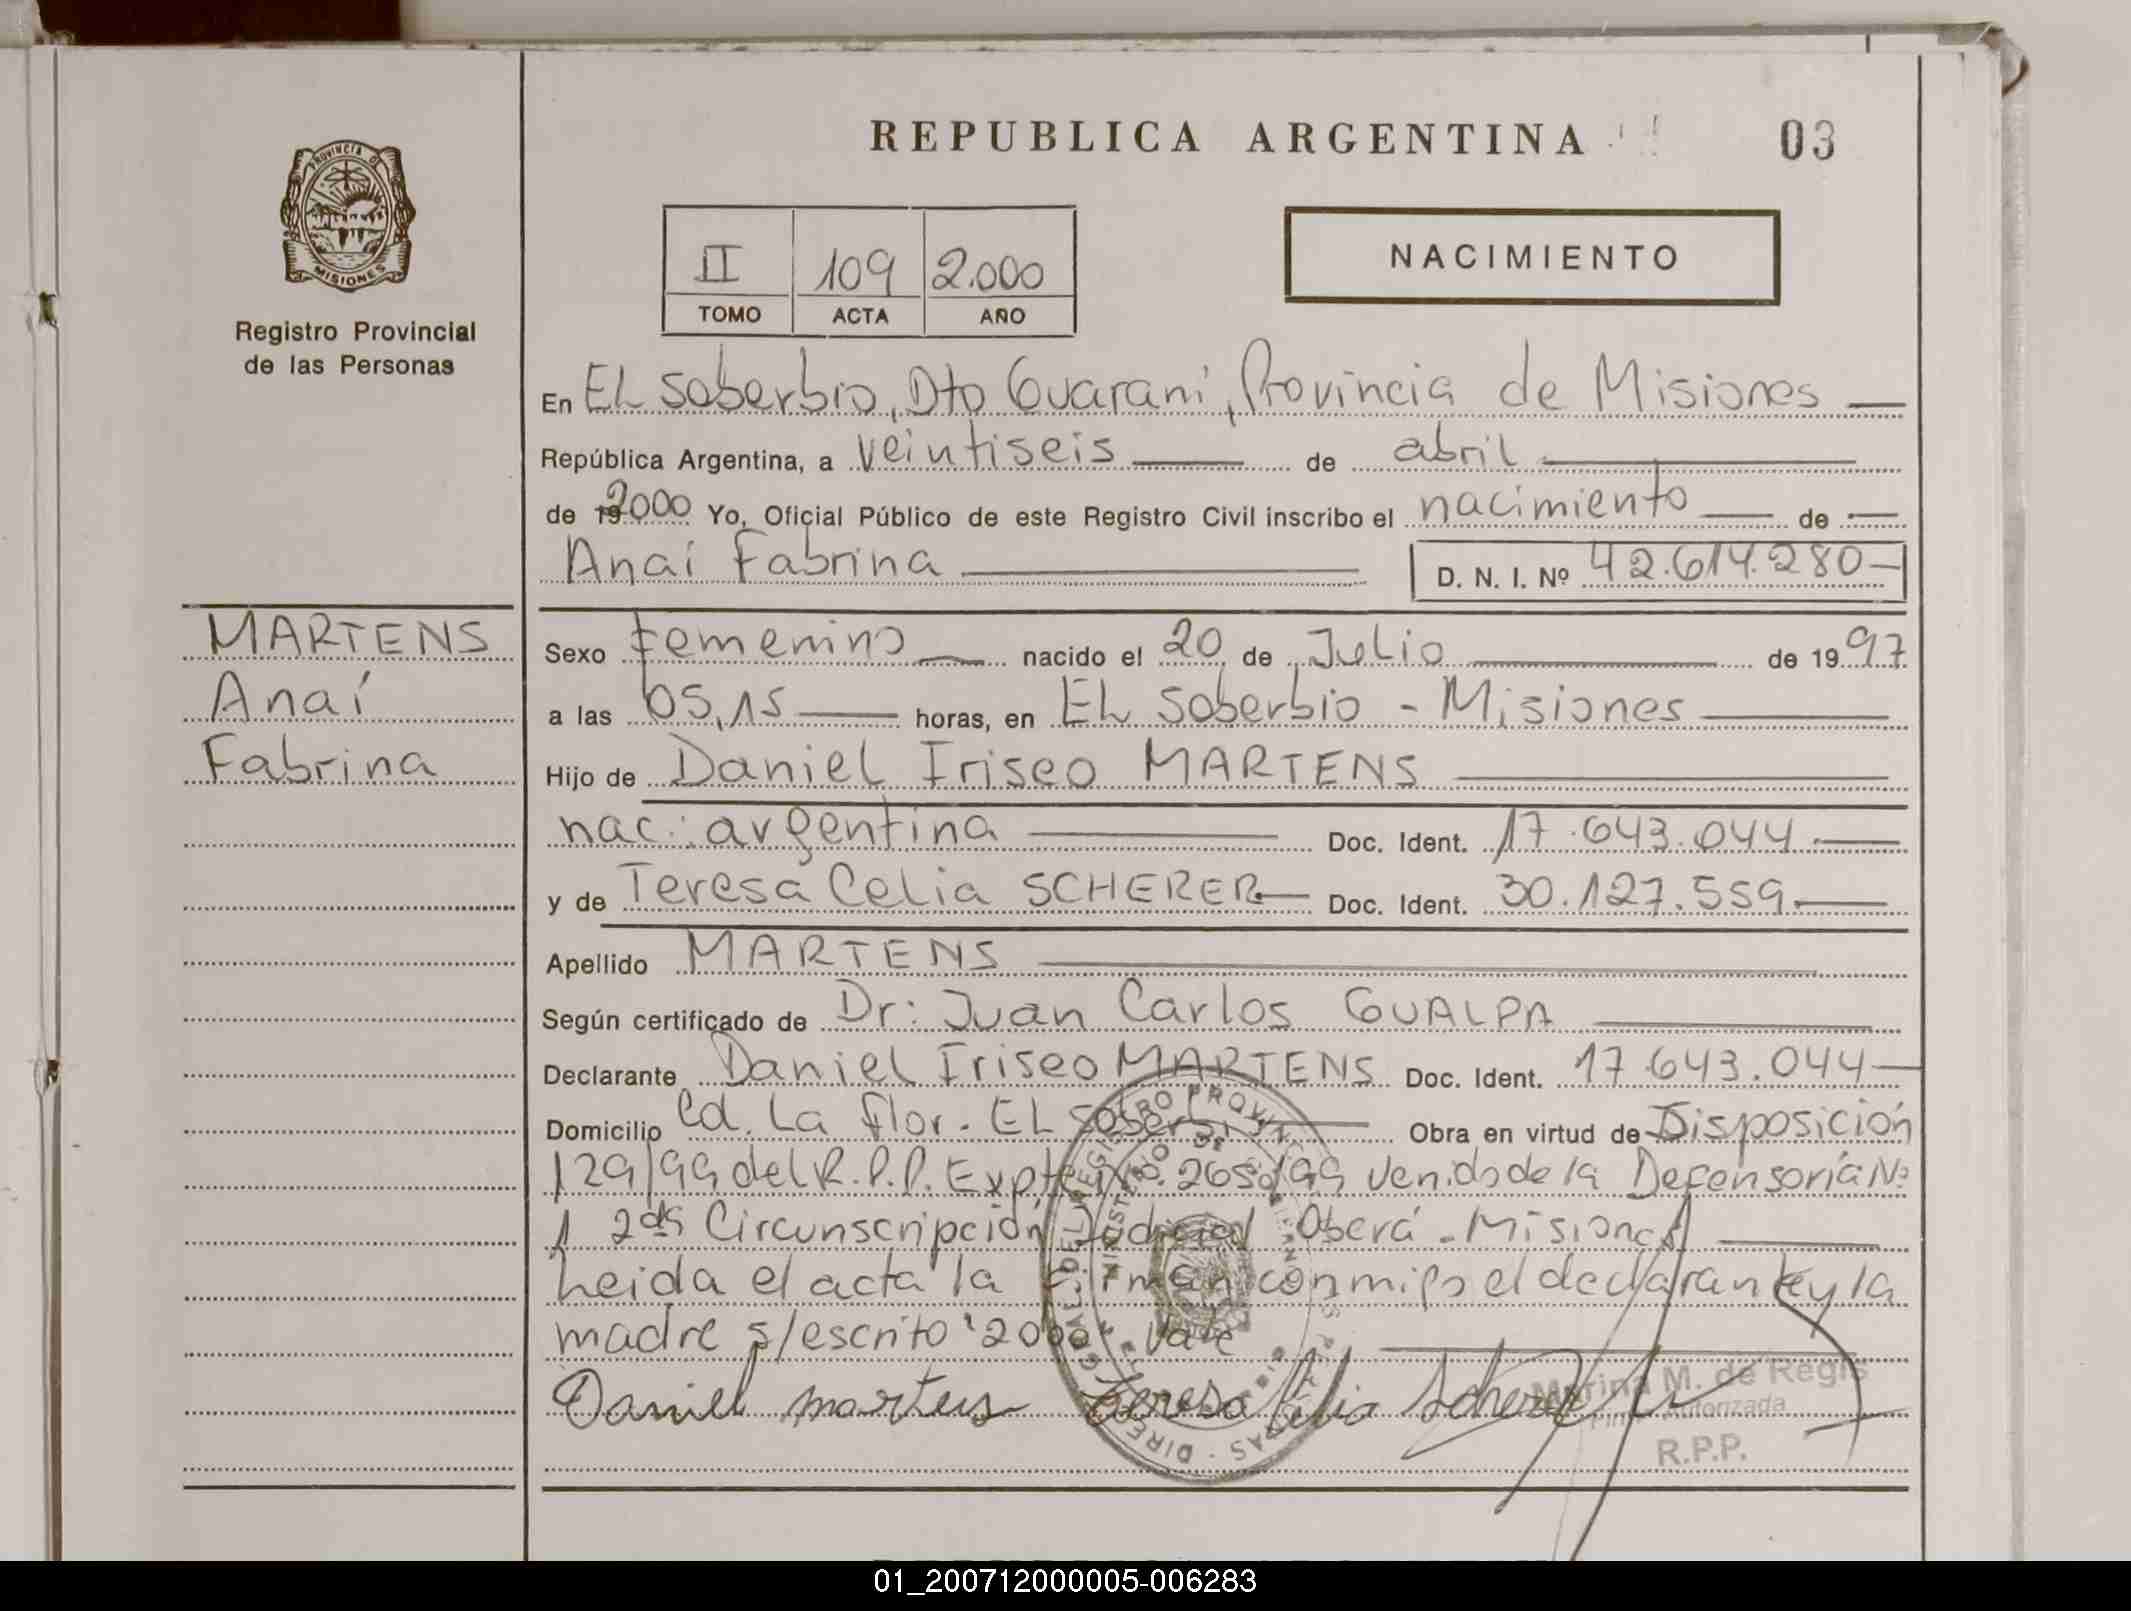 REPUBLICA ARGENTINA
03
PROVINCIA DE
MISIONES
Registro Provincial
de las Personas
II 109 2.000
TOMO ACTA AÑO
NACIMIENTO
En EL Soberbio, Dto Guaraní, Provincia de Misiones
República Argentina, a veintiseis de abril
de 19 2000 Yo, Oficial Público de este Registro Civil inscribo el nacimiento de
Anaí Fabrina D. N. I. Nº 42.614.280
MARTENS
Anaí
Fabrina
Sexo femenino nacido el 20 de Julio de 1997
a las 05,15 horas, en EL Soberbio - Misiones
Hijo de Daniel Iriseo MARTENS
nac: argentina Doc. Ident. 17.643.044
y de Teresa Celia SCHERER Doc. Ident. 30.127.559
Apellido MARTENS
Según certificado de Dr: Juan Carlos GUALPA
Declarante Daniel Iriseo MARTENS Doc. Ident. 17.643.044
Domicilio Cd. La flor. EL Soberbio Obra en virtud de Disposición
129/99 del R.P.P. Expte Nº 265 /99 venido de la Defensoría Nº
1 2da Circunscripción Judicial Oberá - Misiones
Leida el acta la firman conmigo el declarante y la
madre s/escrito "2000" Vale
Daniel martens Teresa Celia Scherer
Marina M. de Regis
Firma Autorizada
R.P.P.
01_200712000005-006283